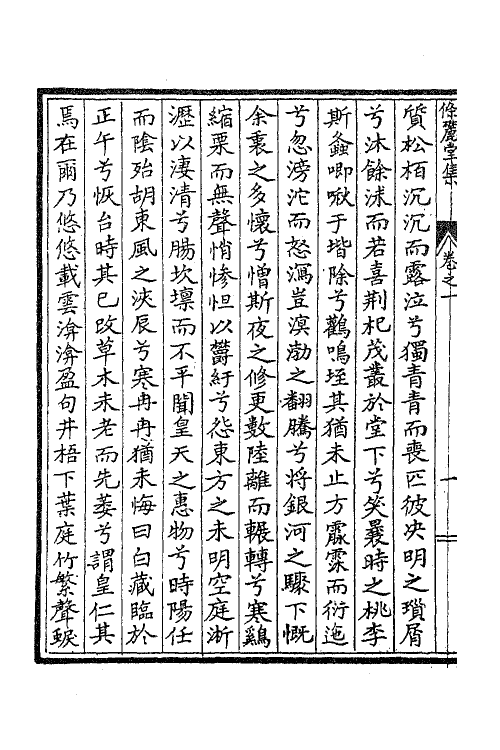 條麓堂集
卷之一
一
質松栢沉沉而露泣兮獨青青而喪匹彼决明之瑣屑
兮沐餘沫而若喜荆杞茂叢於堂下兮笑曩時之桃李
斯螽唧啾于堦除兮鸛鳴垤其猶未止方霢霂而衍迤
兮忽滂沱而怒瀉豈溟渤之翻騰兮將銀河之驟下慨
余褱之多懷兮憎斯夜之修更數陸離而輾轉兮寒鷄
縮栗而無聲悄慘怛以鬱紆兮怨東方之未明空庭淅
瀝以淒清兮腸坎壈而不平聞皇天之惠物兮時陽任
而陰殆胡東風之浹辰兮寒冉冉猶未悔曰白藏臨於
正午兮恢台時其已改草木未老而先萎兮謂皇仁其
焉在爾乃悠悠載雲渰渰盈旬井梧下葉庭竹繁聲蜧